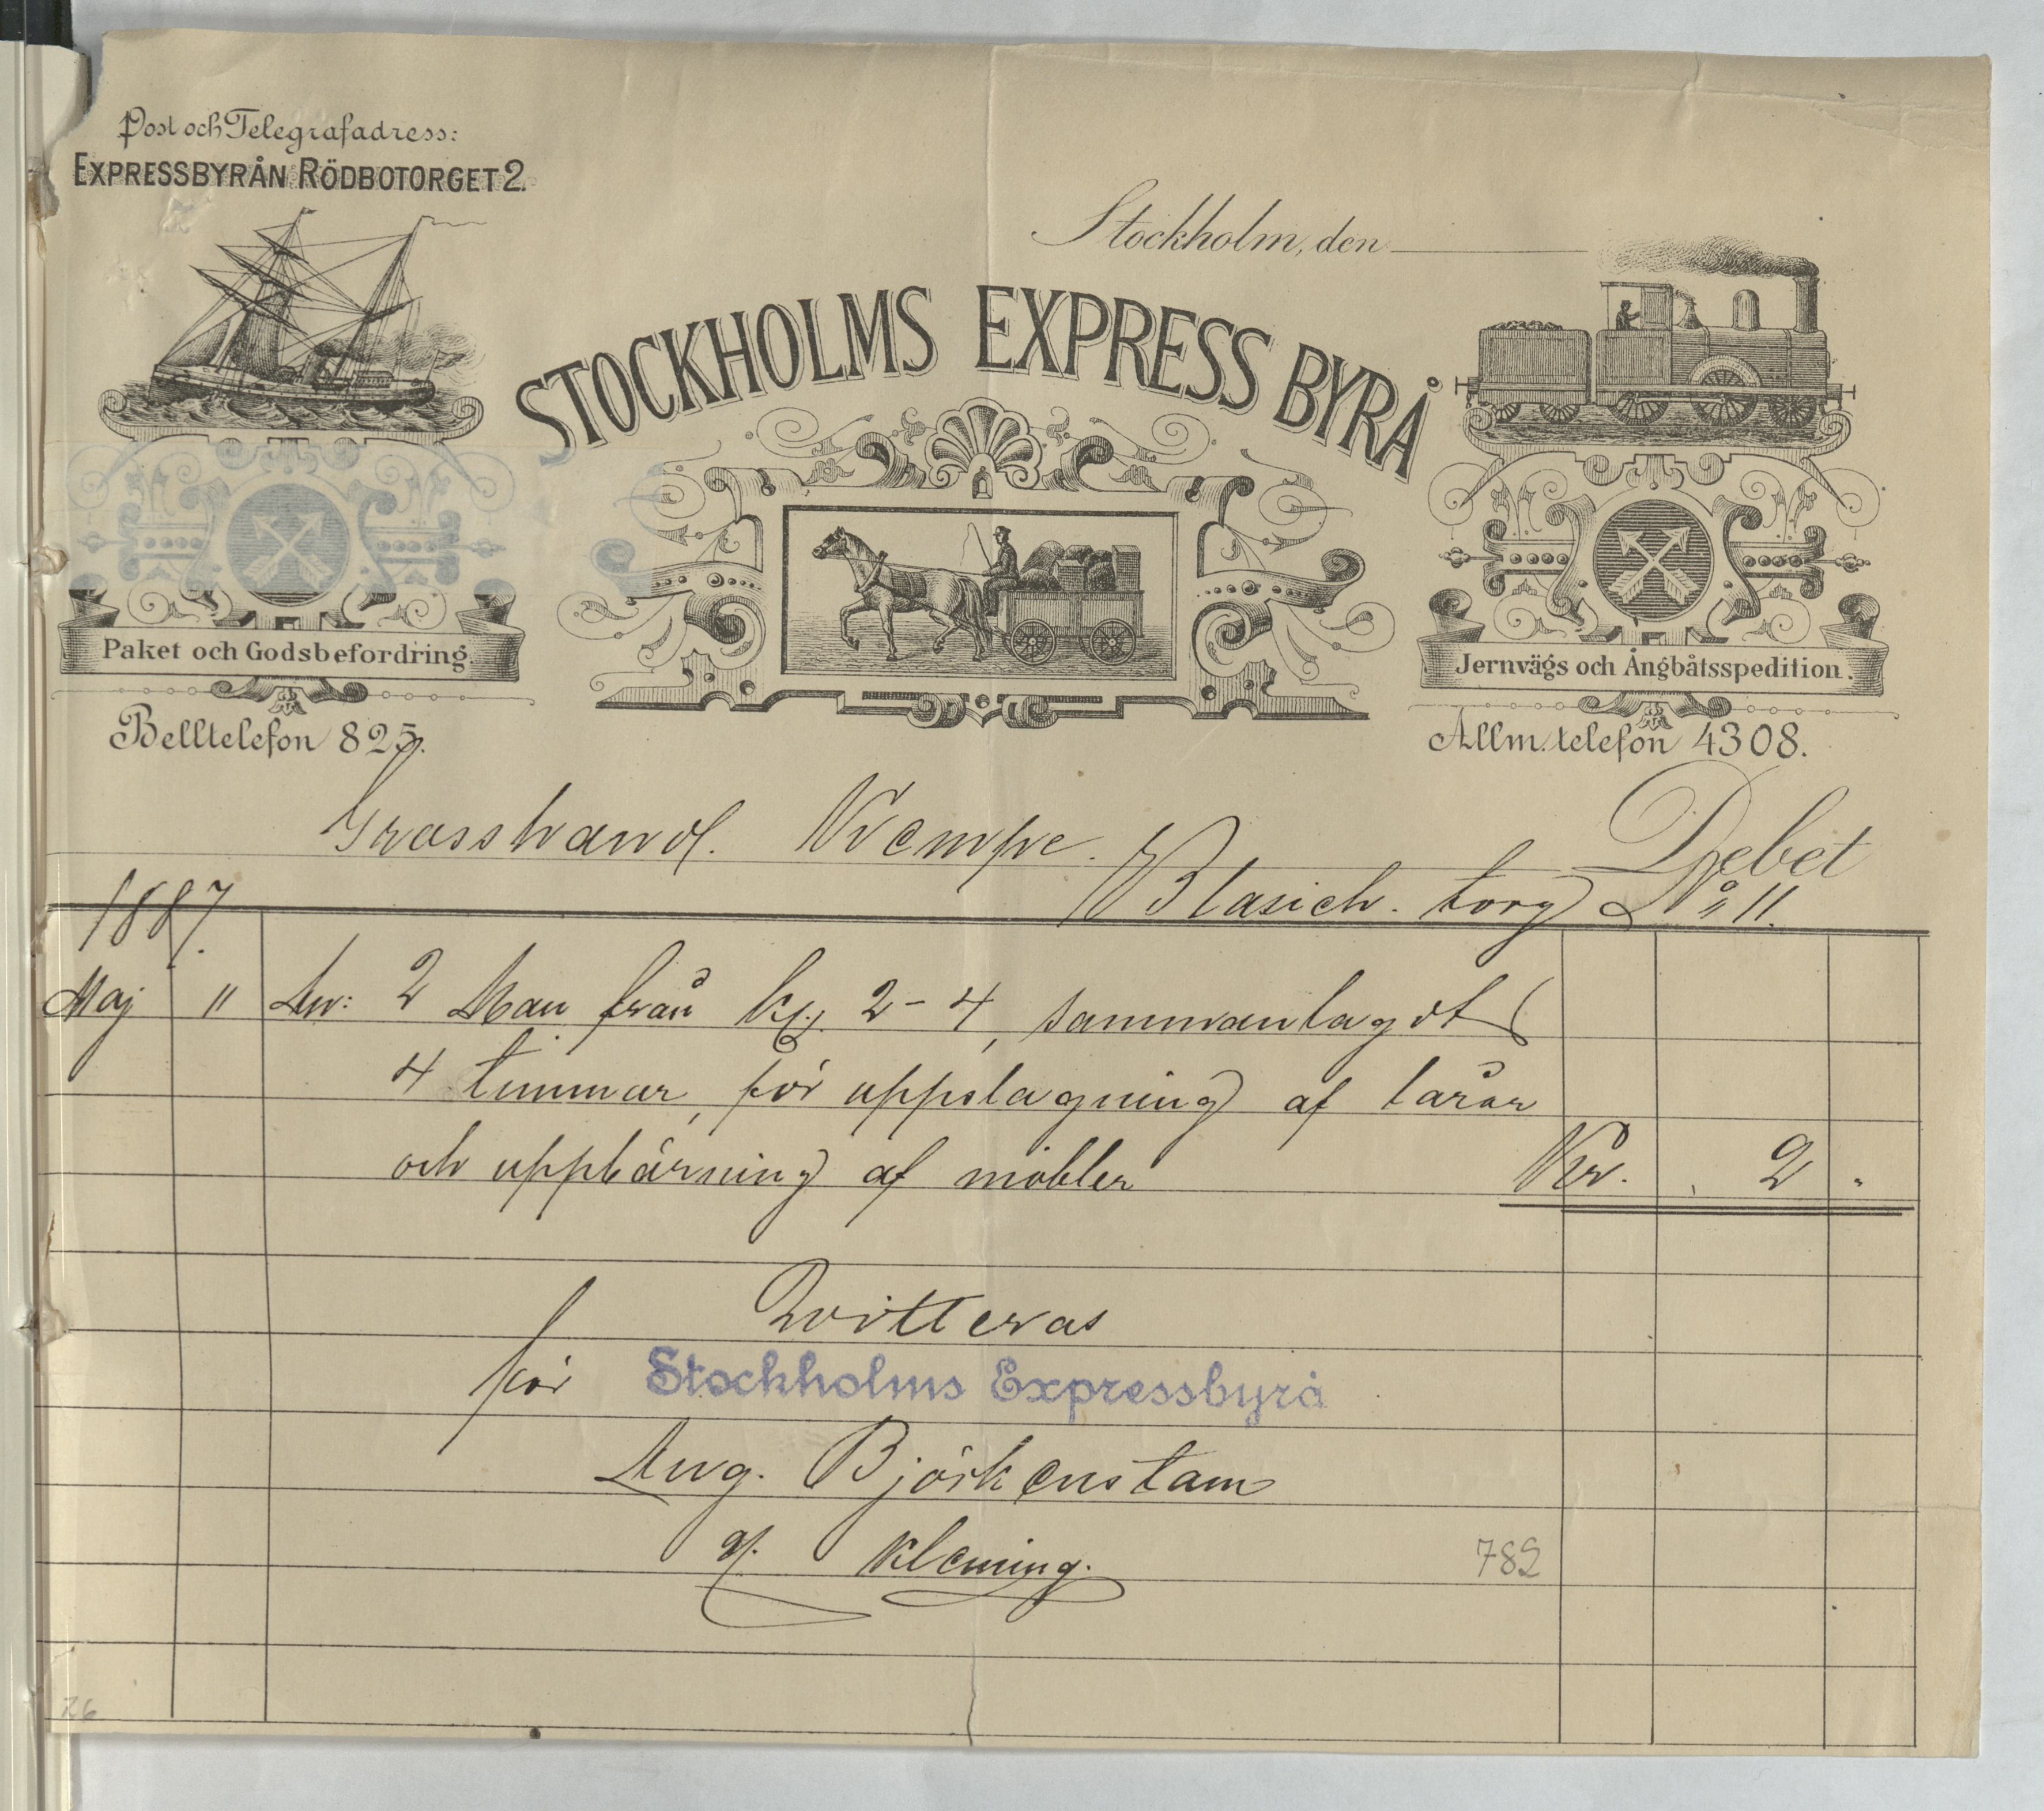 Post och Telegrafadress:
EXPRESSBYRÅN RÖDBOTORGET 2.
Stockholm, den
STOCKHOLMS EXPRESS BYRÅ
Paket och Godsbefordring.
Jernvägs och Ångbåtsspedition.
Belltelefon 825.
Allm. telefon 4308.
Grosshandl. Kempe. Debet
1887. Blasieh. torg No 11.
Maj 11 An: 2 Man från kl. 2-4, sammanlagdt
4 timmar, för uppslagning af lårar
och uppbärning af möbler Kr. 2 "
Qvitteras
för Stockholms Expressbyrå
Aug. Björkenstam
Klemming.
782
76